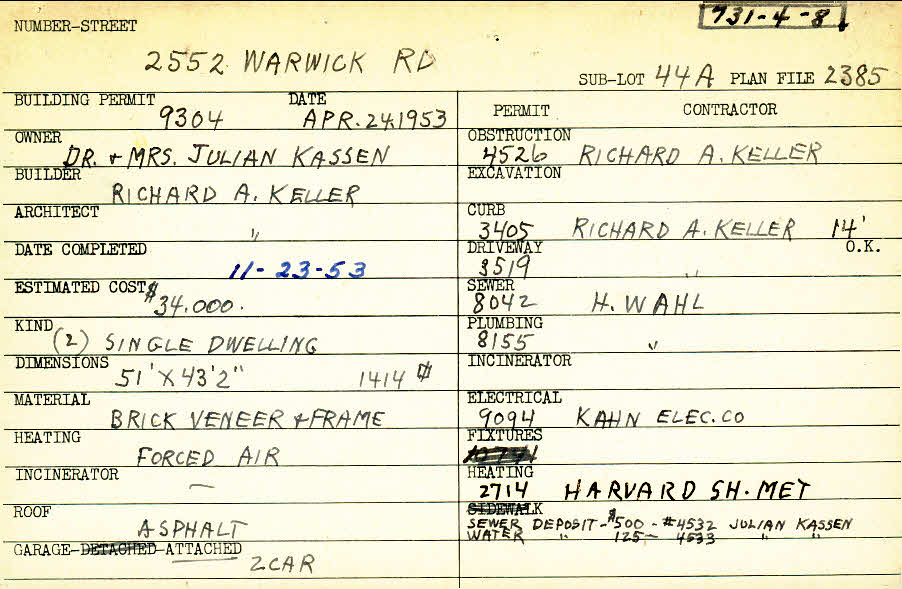 731-4-8
NUMBER-STREET
2552 WARWICK RD
SUB-LOT 44A PLAN FILE 2385
BUILDING PERMIT DATE
9304 APR. 24, 1953
OWNER
DR. + MRS. JULIAN KASSEN
BUILDER
RICHARD A. KELLER
ARCHITECT
"
DATE COMPLETED
11-23-53
ESTIMATED COST
$34.000.
KIND
(2) SINGLE DWELLING
DIMENSIONS
51' X 43'2" 1414
MATERIAL
BRICK VENEER + FRAME
HEATING
FORCED AIR
INCINERATOR
—
ROOF
ASPHALT
GARAGE-DETACHED-ATTACHED
2 CAR
PERMIT CONTRACTOR
OBSTRUCTION
4526 RICHARD A. KELLER
EXCAVATION
CURB
3405 RICHARD A. KELLER 14'
DRIVEWAY O.K.
3519 "
SEWER
8042 H. WAHL
PLUMBING
8155 "
INCINERATOR
ELECTRICAL
9094 KAHN ELEC. CO
FIXTURES
HEATING
2714 HARVARD SH. MET
SIDEWALK
SEWER DEPOSIT - $500 - #4532 JULIAN KASSEN
WATER " 125 — 4533 " "